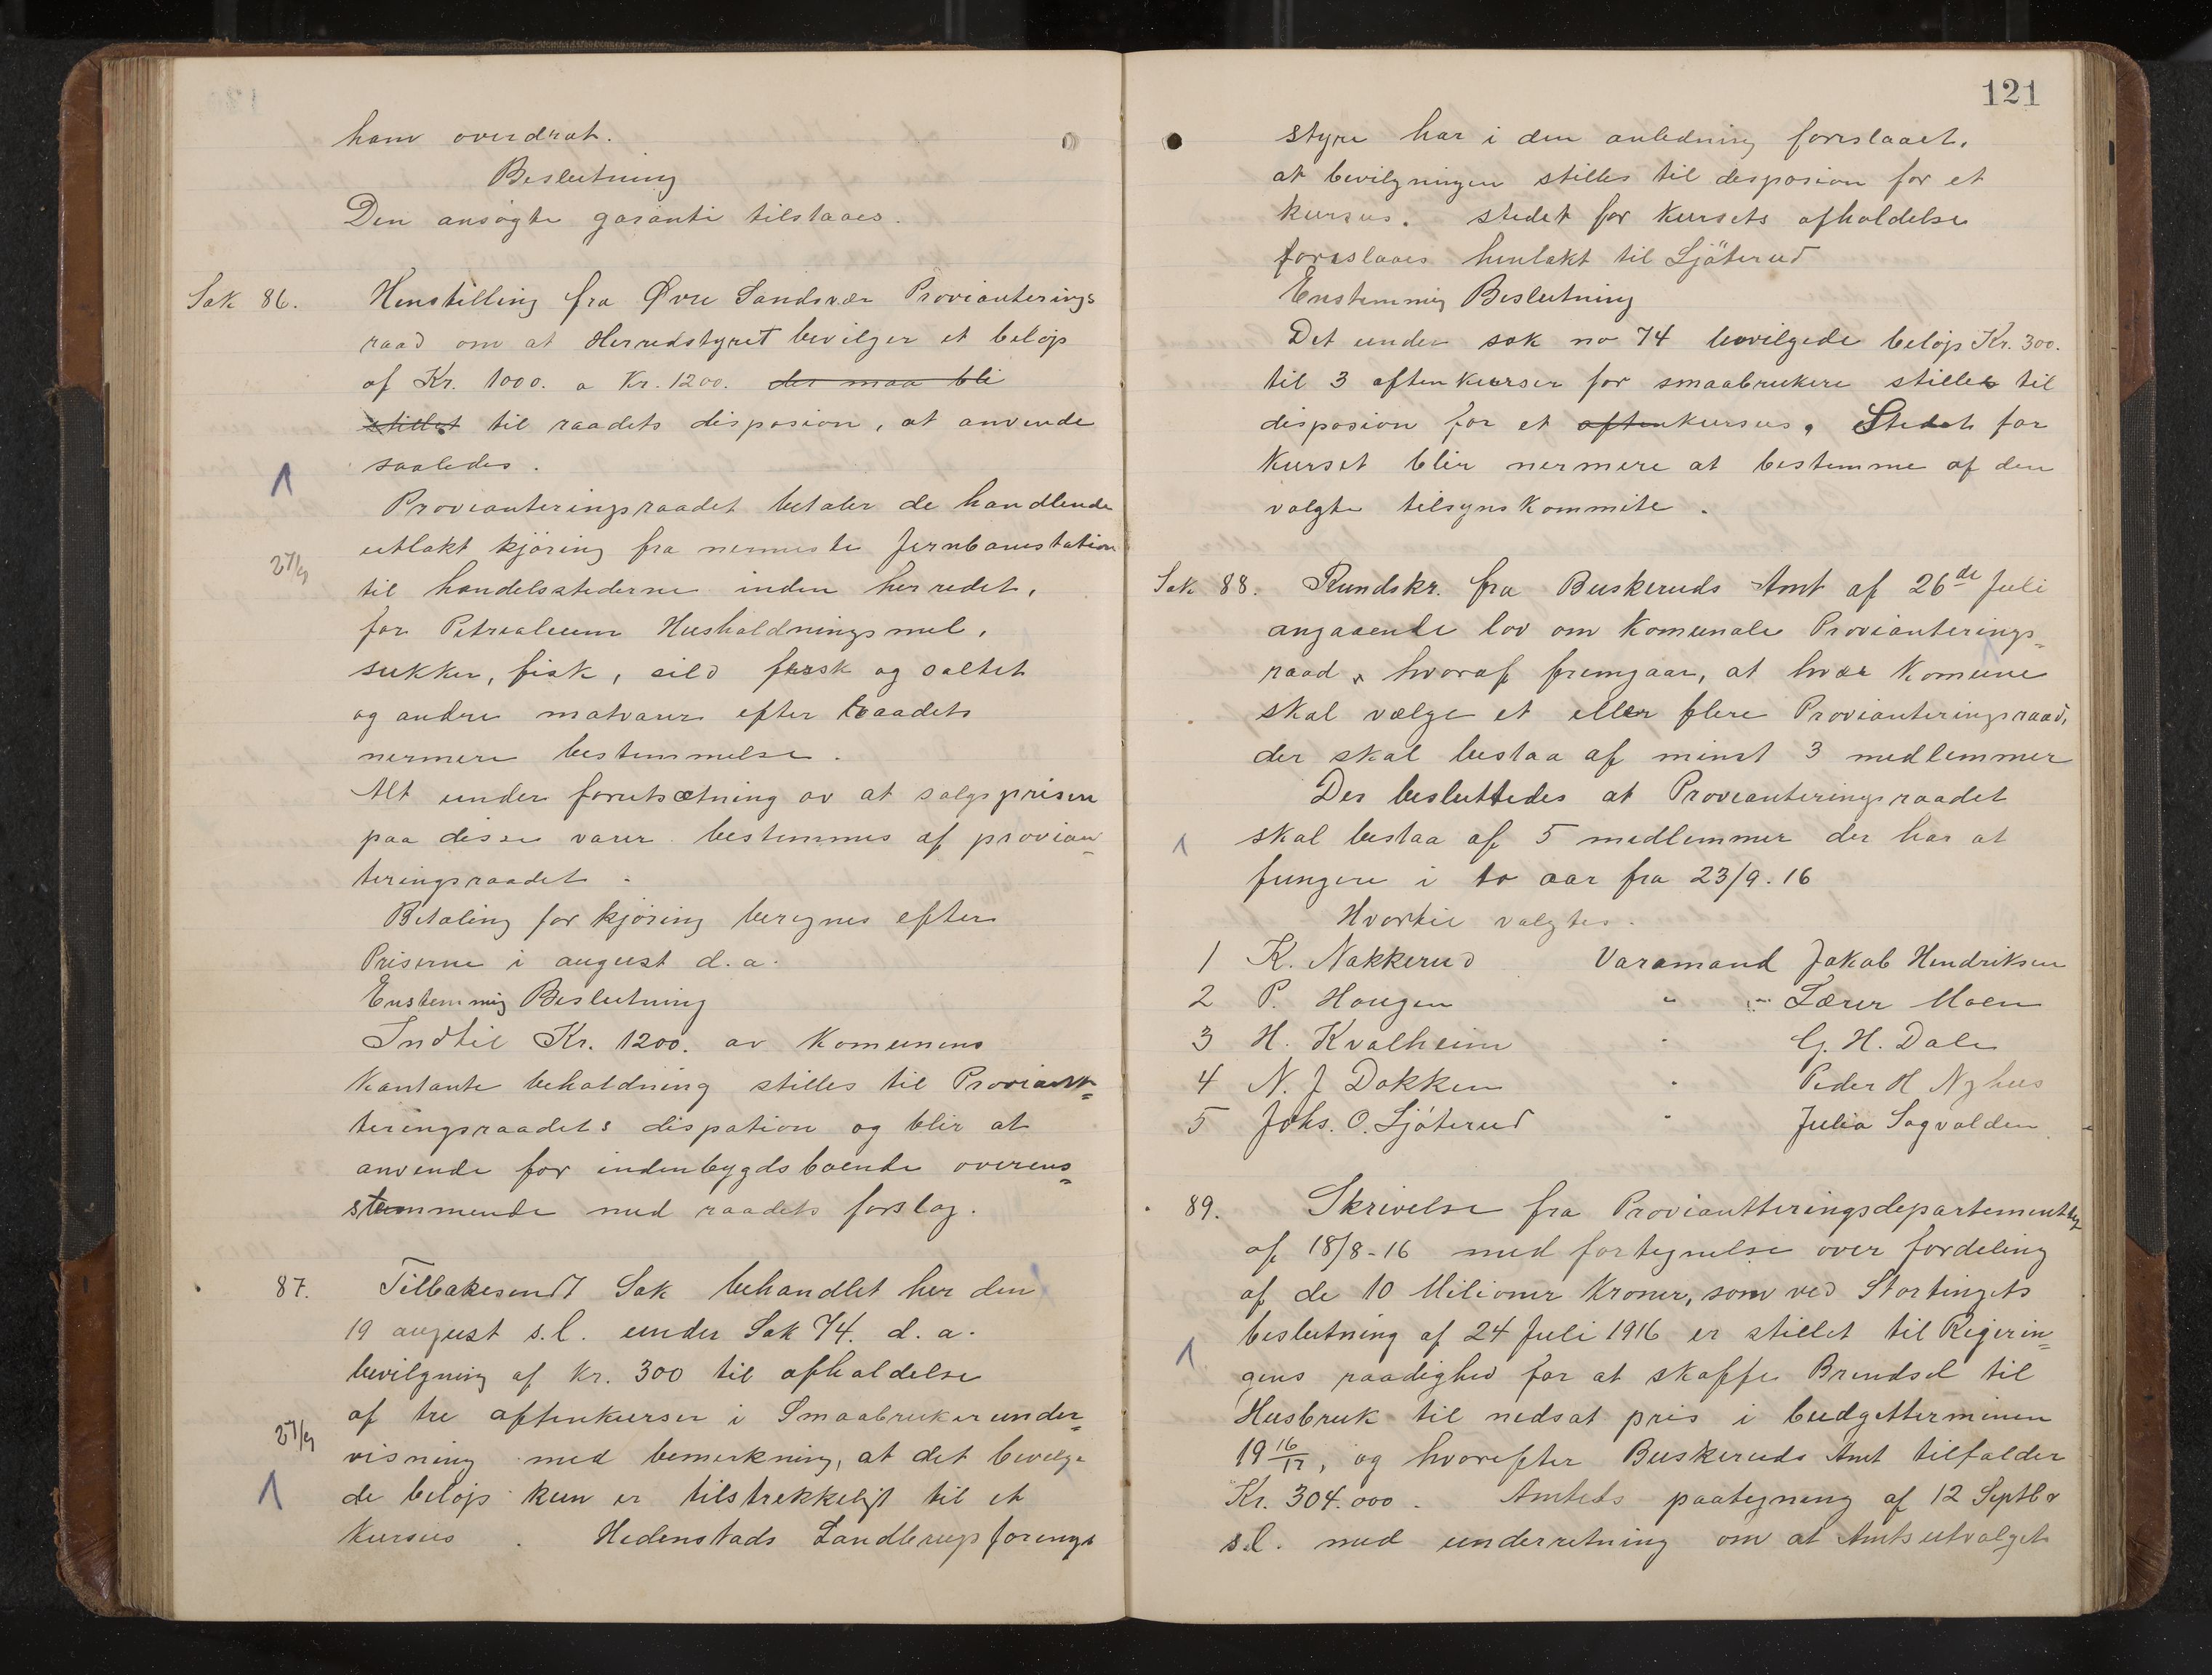 ham overdrat.
Beslutning
Den ansøgte garanti tilstaaes.
Sak 86. Henstilling fra Øvre Sandsvær Provianterings
raad om at Herredstyret bevilger et beløp
af Kr. 1000. a Kr. 1200. der maa bli
stillet til raadets disposion, at anvende
saaledes.
Provianteringsraadet betaler de handlende
utlakt kjøring fra nermeste Jernbanestation
27/9
til handelsstederne inden herredet,
for Petrolium Husholdningsmel,
sukker, fisk, sild fersk og saltet
og andre matvarer efter raadets
nermere bestemmelse.
Alt under forutsætning av at salgsprisen
paa disse varer bestemmes af provian
teringsraadet.
Betaling for kjøring beregnes efter
Priserne i august d.a.
Enstemmig Beslutning
Indtil Kr. 1200. av Komunens
Kontante beholdning stilles til Proviant=
teringsraadets dispation og blir at
anvende for indenbygdsboende overens=
stemmende med raadets forslag.
87. Tilbakesendt Sak behandlet her den
19 august s.l. under Sak 74. d.a.
bevilgning af Kr. 300 til afholdelse
af tre aftenkurser i Smaabrukerunder=
27/9
visning med bemerkning, at det bevilge
de beløp kun er tilstrekkeligt til et
Kursus. Hedenstads Landbrugsforenigs
121
styre har i den anledning foreslaaet,
at bevilgningen stilles til desposion for et
kursus. stedet for Kursets afholdelse
foreslaaes henlakt til Sjøterud
Enstemmig Beslutning
Det under sak no 74 bevilgede beløp Kr. 300.
til 3 aftenkurser for smaabrukere stilles til
disposion for et aftenkursus, Stedet for
Kurset blir nermere at bestemme af den
valgte tilsynskommite.
Sak 88. Rundskr. fra Buskeruds Amt af 26de Juli
angaaende lov om Komunale Provianterings=
raad, hvoraf fremgaar, at hver Komune
skal vælge et eller flere Provianteringsraad,
der skal bestaa af minst 3 medlemmer
Des besluttedes at Provianteringsraadet
skal bestaa af 5 medlemmer der har at
fungere i to aar fra 23/9. 16
Hvortil valgtes.
1 K. Nakkerud Varamand Jakob Hendriksen
2 P. Haugen " " Lærer Moen
3 H. Kvalheim " G. H. Dale
4 N. J Dokken " Peder H Nyhus
5 Johs. O. Sjøterud " Julia Sagvolden
89. Skrivelse fra Proviantteringsdepartementet
af 18/8-16 med fortegnelse over fordeling
af de 10 Milioner Kroner, som ved Stortingets
beslutning af 24 Juli 1916 er stillet til Regjerin=
gens raadighed for at skaffe Brendsel til
Husbruk til nedsat pris i budgetterminen
19 16/17, og hvorefter Buskeruds Amt tilfalder
Kr. 304.000. Amtets paategning af 12 Septbr
s.l. med underretning om at Amtsutvalget